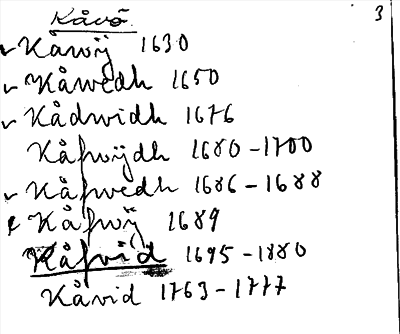 Kåvö 3
✓ Kåwij 1630
✓ Kåwedh 1650
✓ Kådwidh 1676
Kåfwijdh 1680-1700
✓ Kåfwedh 1686-1688
Kåfwij 1689
Kåfvid 1695-1880
Kåvid 1763-1777